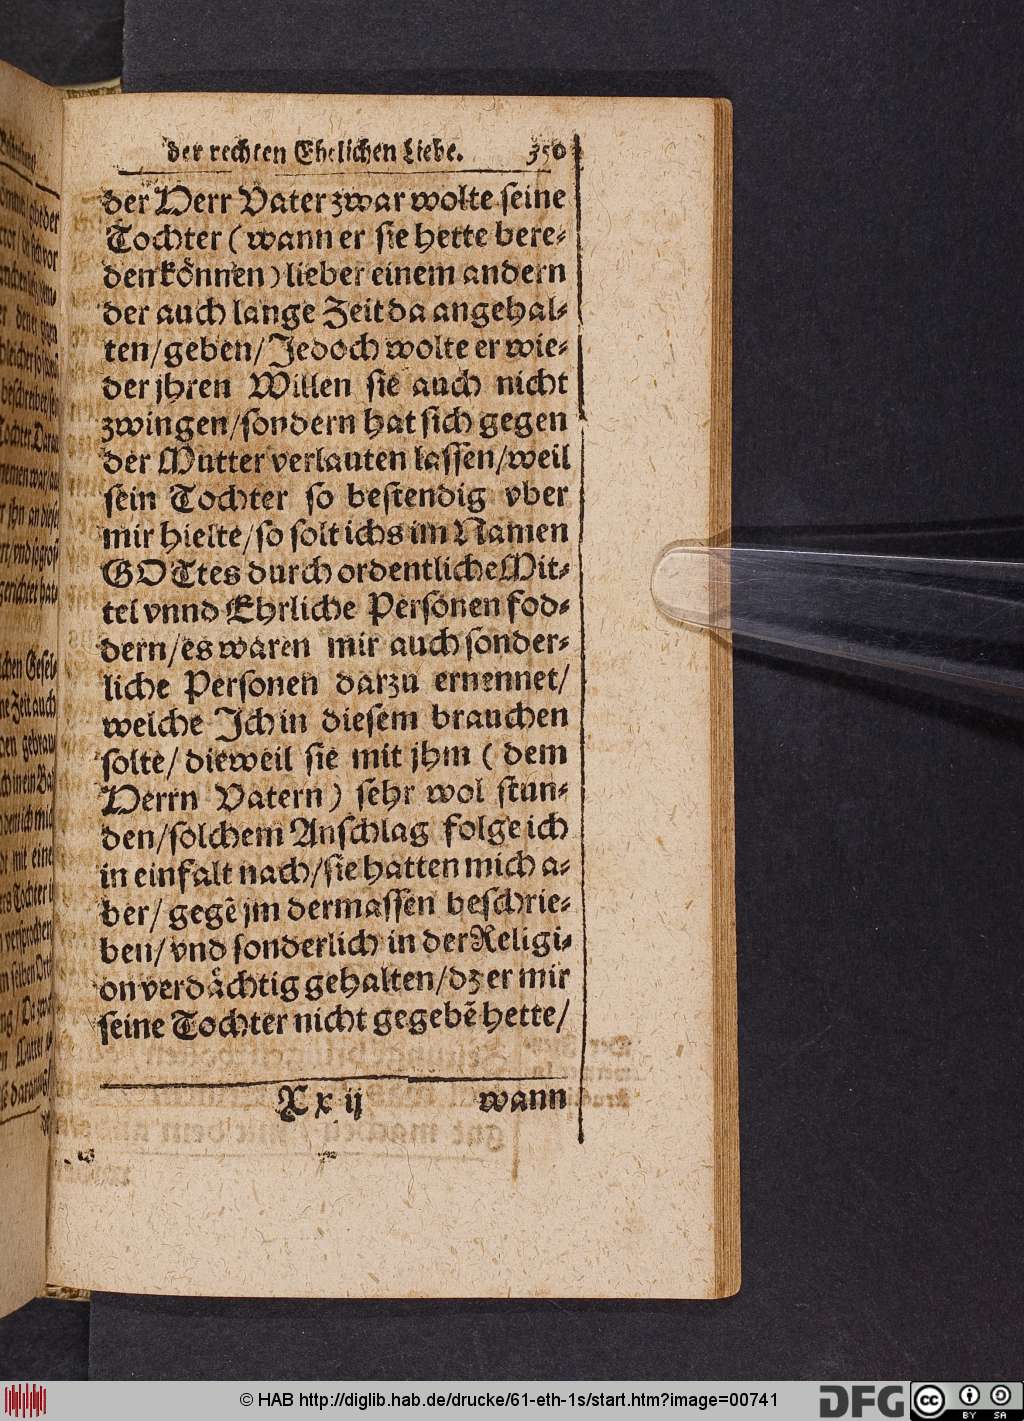 der rechten Ehelichen Liebe. 350
der Herr Vater zwar wolte seine
Tochter (wann er sie hette bere-
den können) lieber einem andern
der auch lange Zeit da angehal-
ten/geben/Jedoch wolte er wie-
der jhren Willen sie auch nicht
zwingen/sondern hat sich gegen
der Mutter verlauten lassen/weil
sein Tochter so bestendig vber
mir hielte/so solt ichs im Namen
GOTtes durch ordentliche Mit-
tel vnnd Ehrliche Personen fod-
dern/es waren mir auch sonder-
liche Personen darzu ernennet/
welche Ich in diesem brauchen
solte/dieweil sie mit jhm (dem
Herrn Vatern) sehr wol stun-
den/solchem Anschlag folge ich
in einfalt nach/sie hatten mich a-
ber/gegē jm dermassen beschrie-
ben/vnd sonderlich in der Religi-
on verdächtig gehalten/dz er mir
seine Tochter nicht gegebē hette/
Xx ij wann
© HAB http://diglib.hab.de/drucke/61-eth-1s/start.htm?image=00741
DFG
cc BY SA